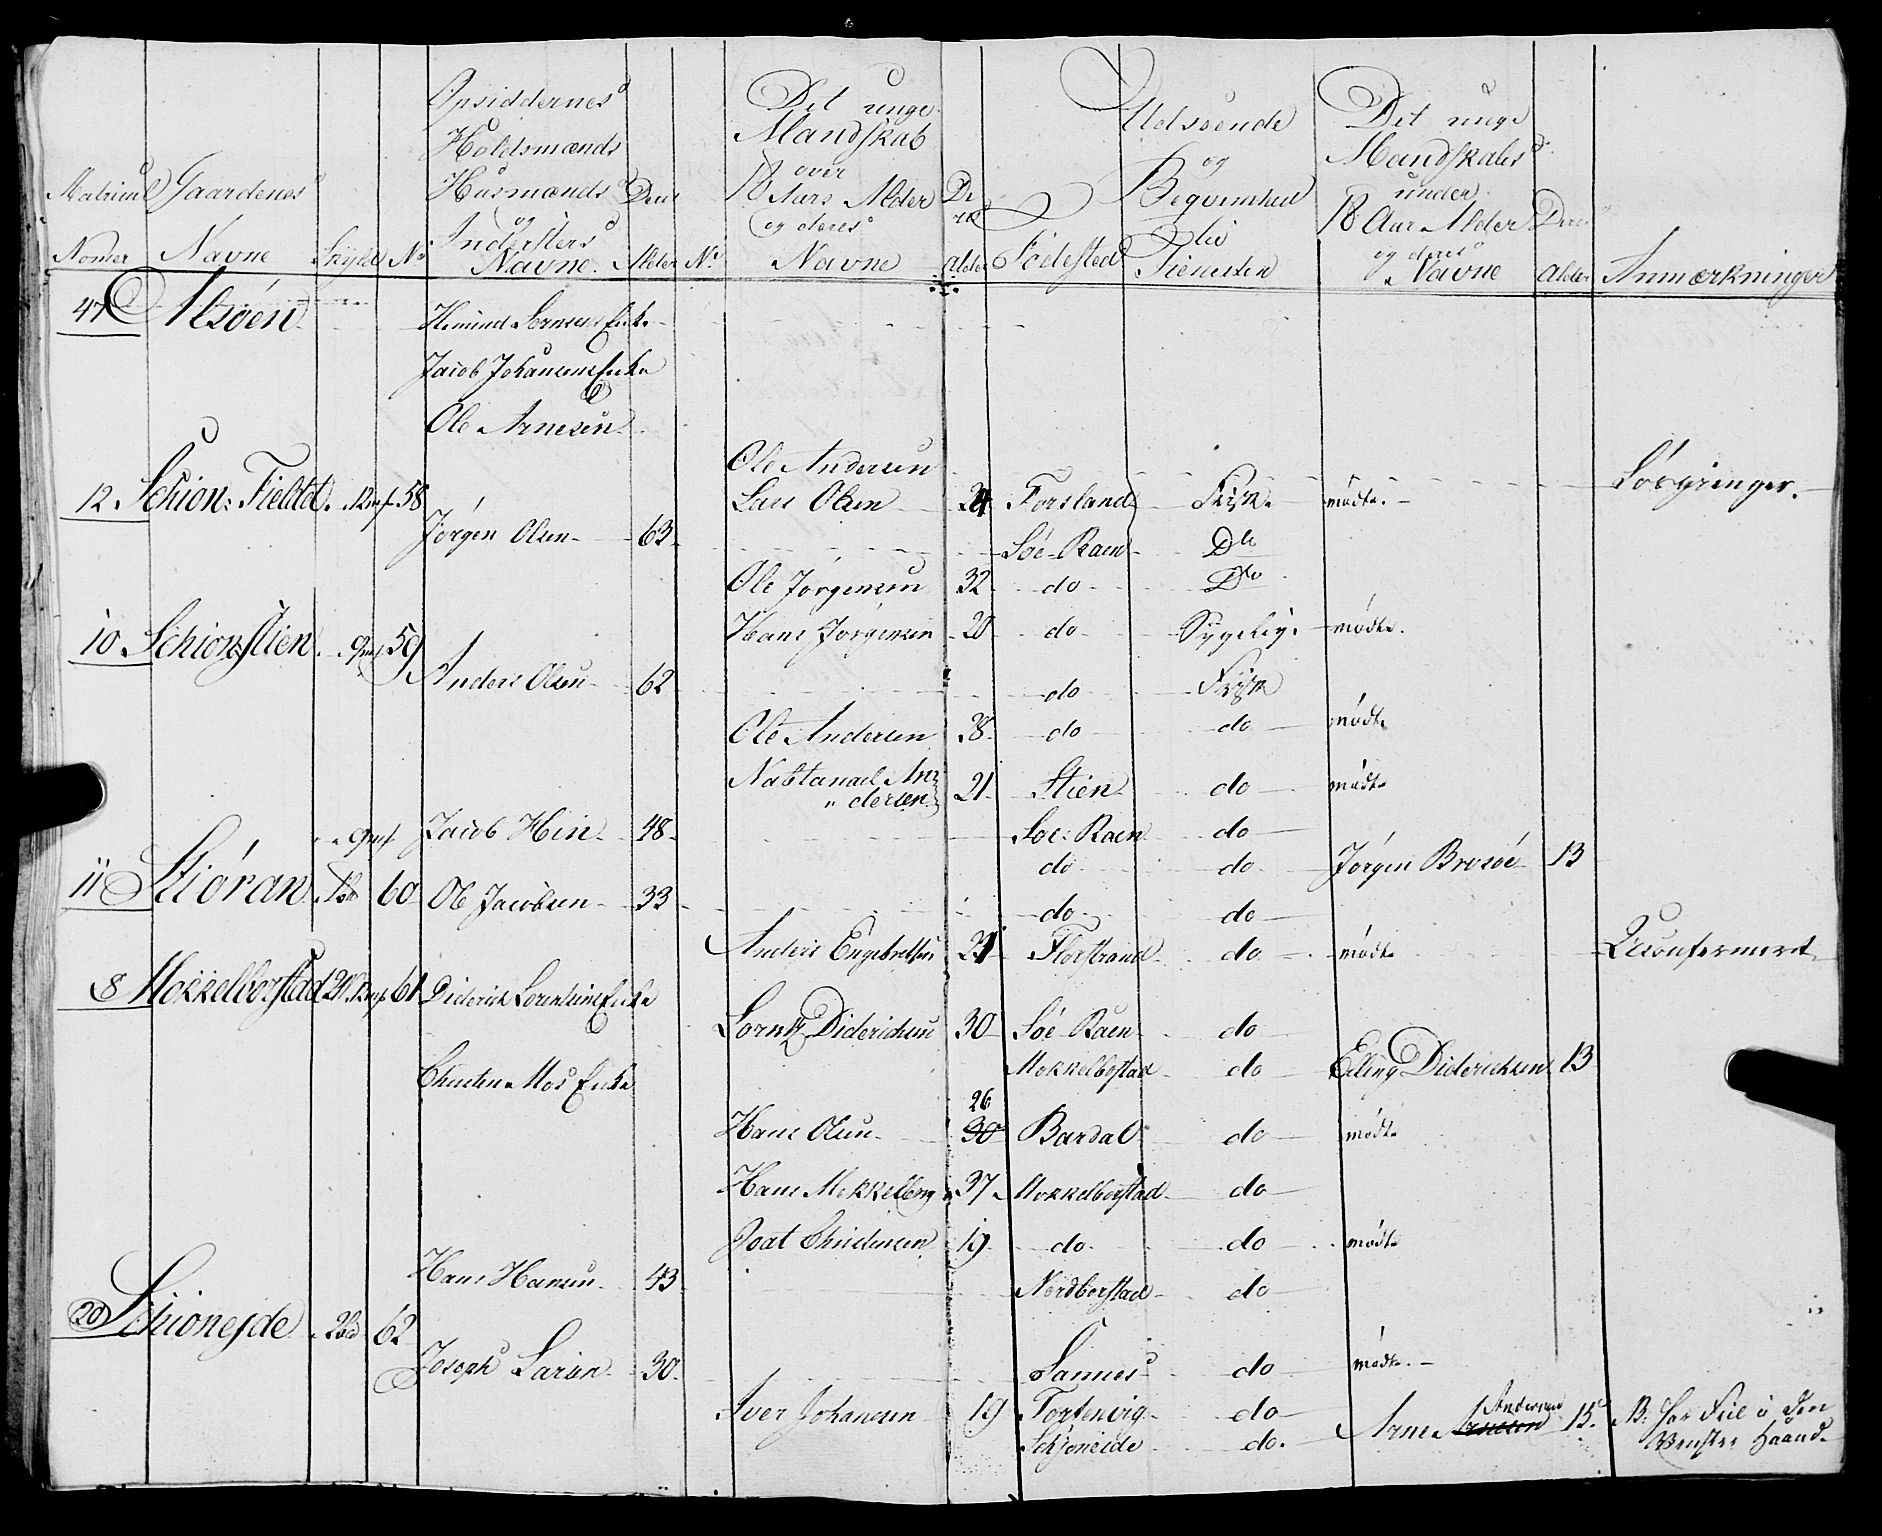 Matricul Nomer
Gaardenes Navne
Skyld
No
Opsiddernes Holdsmænds Husmænds og Indersters Navne.
Deres Alder
No
Det unge Mandskab over 18 Aars Alder og deres Navne
Deres alder
Födested
Udseende og Beqvemhed til Tienesten
Det unge Mandskabs under 18 Aar Alder og deres Navne
Deres alder
Anmærkninger
47 Alsøen
Jacob Johansens Enke
Ole Arnesen
Ole Andersen
12. Schion: Fieldet. 58 Lars Olsen 24 Forsland Frisk mødte. Sørgringer.
Jørgen Olsen 63 Søe-Raen Do
Ole Jørgensen 32 do Do
Hans Jørgensen 20 do Sygelig. mødte.
10. Schionstien. 59
Anders Olsen 62 do Frisk
Ole Andersen 28. do do mødte
Nattanael An=
" dersen 21. Stien do mødte
Jacob Hein 48 Søe: Raen do
do do Jørgen Brosøe 13
11 Stiøran 60 Ole Jacobsen 33 do do
Anders Engebretsen 21 Florstrand do mødte Uconfermeret
8 Mokkelborstad 61 Diderich Lorentsens Enke
Lorntz Diderichsen 30 Søe-Raen do
Mokkelbostad do Elling Diderichsen 13
Christen Moes Enke
Hans Olsen 26 30 Bardal do mødte
Hans Mekkelborg 37 Mokkelborstad do
Joat Christensen 19 do do mødte
Hans Hansen 43 Nordborstad do
20 Schionejde 62
Joseph Larsen 30. Sannes do mødte.
Iver Johansen 19 Forfenvig do Arne Arnesen Andersen 15. B: har Feil i den
Schjoneide do. Venster Haand.